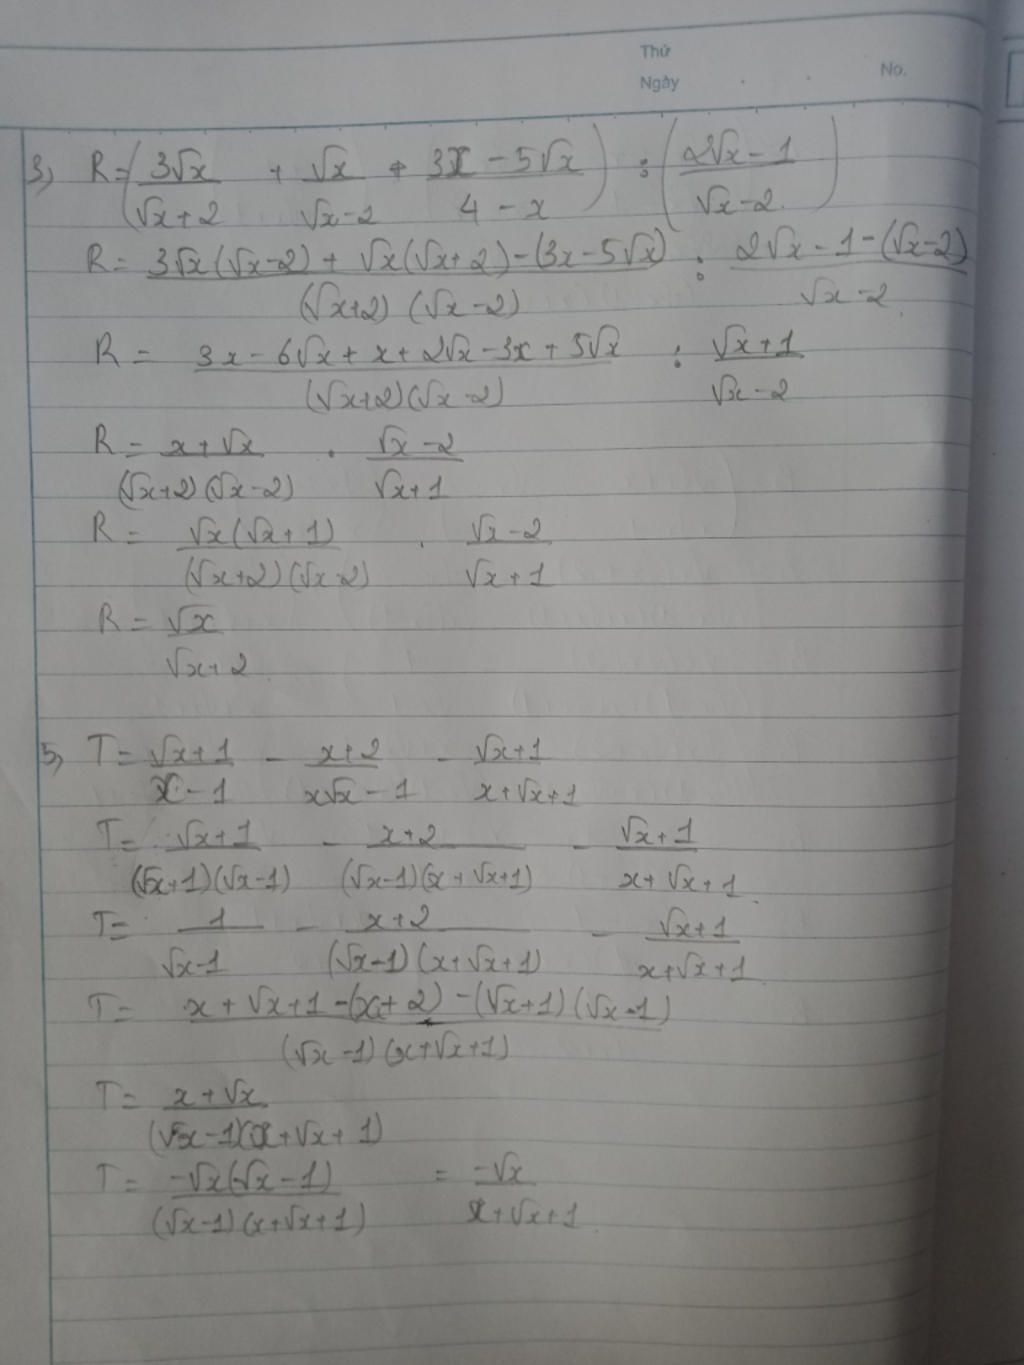 Thứ
Ngày No.
3, R = (3√x/(√x+2) + √x/(√x-2) + (3x - 5√x)/(4 - x)) : ((2√x - 1)/(√x - 2))
R = (3√x(√x-2) + √x(√x+2) - (3x - 5√x))/((√x+2)(√x-2)) : (2√x - 1 - (√x-2))/(√x-2)
R = (3x - 6√x + x + 2√x - 3x + 5√x)/((√x+2)(√x-2)) : (√x+1)/(√x-2)
R = (x + √x)/((√x+2)(√x-2)) . (√x-2)/(√x+1)
R = (√x(√x+1))/((√x+2)(√x-2)) . (√x-2)/(√x+1)
R = √x/(√x+2)
5, T = (√x+1)/(x-1) - (x+2)/(x√x-1) - (√x+1)/(x+√x+1)
T = (√x+1)/((√x+1)(√x-1)) - (x+2)/((√x-1)(x+√x+1)) - (√x+1)/(x+√x+1)
T = 1/(√x-1) - (x+2)/((√x-1)(x+√x+1)) - (√x+1)/(x+√x+1)
T = (x+√x+1-(x+2)-(√x+1)(√x-1))/((√x-1)(x+√x+1))
T = (x+√x)/((√x-1)(x+√x+1))
T = (-√x(√x-1))/((√x-1)(x+√x+1)) = -√x/(x+√x+1)